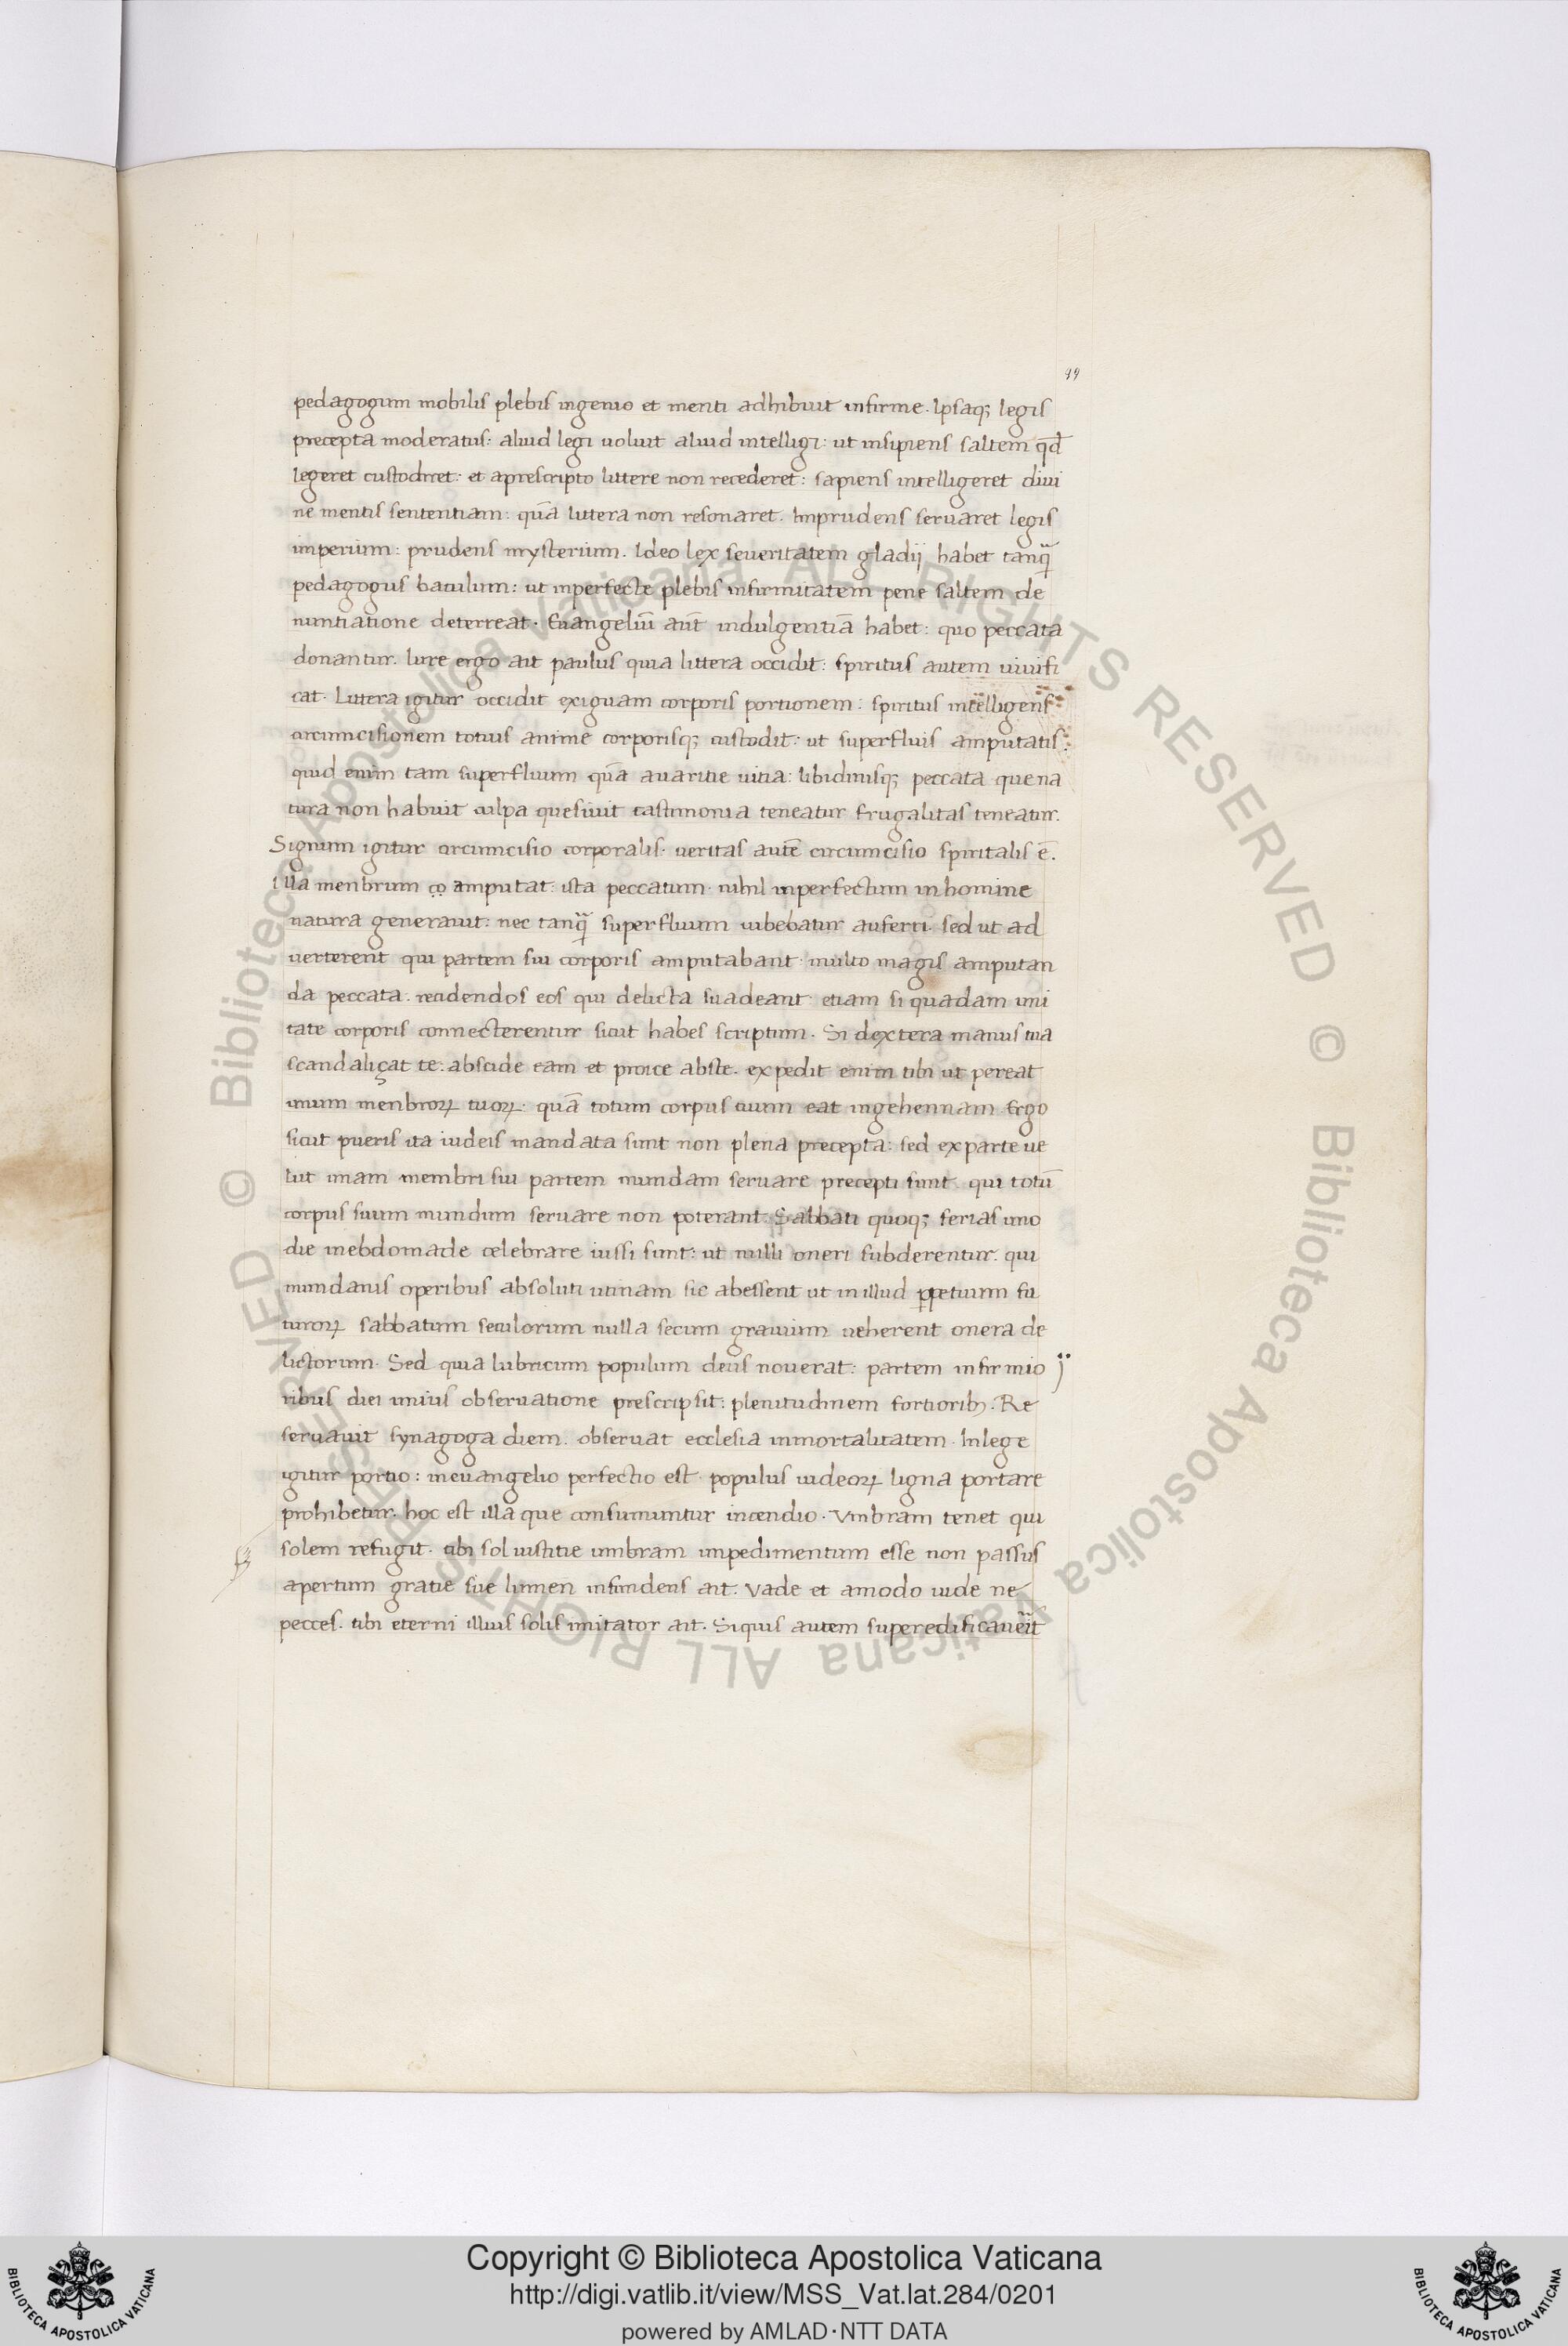 99
pedagogum mobilis plebis ingenio et menti adhibuit infirme. Ipsaq; legis
precepta moderatus: aliud legi uoluit aliud intelligi: ut insipiens saltem qd̄
legeret custodiret: et aprescripto littere non recederet: sapiens intelligeret diui
ne mentis sententiam: quā littera non resonaret. Imprudens seruaret legis
imperium: prudens mysterium. Ideo lex seueritatem gladij habet tanq̄
pedagogus baculum: ut inperfecte plebis infirmitatem pene saltem de
nuntiatione deterreat. Euangeliū aūt indulgentiā habet: quo peccata
donantur. Iure ergo ait paulus quia littera occidit: spiritus autem uiuifi
cat. Littera igitur occidit exiguam corporis portionem: spiritus intelligens
circumcisionem totius anime corporisq; custodit: ut superfluis amputatis:
quid enim tam superfluum quā auaritie uitia: libidinisq; peccata que na
tura non habuit culpa quesiuit castimonia teneatur frugalitas teneatur.
Signum igitur circumcisio corporalis. ueritas autē circumcisio spiritalis ē.
Illa menbrum co amputat: ista peccatum. nihil inperfectum in homine
natura generauit: nec tanq̄ superfluum iubebatur auferri. sed ut ad
uerterent qui partem sui corporis amputabant. multo magis amputan
da peccata. recidendos eos qui delicta suadeant. etiam si quadam uni
tate corporis connecterentur sicut habes scriptum. Si dextera manus tua
scandaliçat te: abscide eam et proice abste. expedit enim tibi ut pereat
unum menbroꝝ tuoꝝ. quā totum corpus tuum eat ingehennam. Ergo
sicut pueris ita iudeis mandata sunt non plena precepta: sed ex parte ue
lut unam membri sui partem mundam seruare precepti sunt. qui totū
corpus suum mundum seruare non poterant. Sabbati quoq; ferias uno
die inebdomade celebrare iussi sunt: ut nulli oneri subderentur. qui
mundanis operibus absoluti utinam sic abessent ut in illud ꝑpetuum fu
turoꝝ sabbatum seculorum nulla secum grauium ueherent onera de
lictorum. Sed quia lubricum populum deus nouerat: partem infirmio
ribus diei unius obseruatione prescripsit: plenitudinem fortiorib;. Re
seruauit synagoga diem. obseruat ecclesia inmortalitatem. Inlege
igitur portio: ineuangelio perfectio est. populus iudeoꝝ ligna portare
prohibetur. hoc est illa que consumuntur incendio. Vmbram tenet qui
solem refugit. tibi sol iustitie umbram impedimentum esse non passus
apertum gratie sue lumen infundens ait. Vade et amodo uide ne
pecces. tibi eterni illius solis imitator ait. Siquis autem superedificauerit
Copyright © Biblioteca Apostolica Vaticana
http://digi.vatlib.it/view/MSS_Vat.lat.284/0201
powered by AMLAD·NTT DATA
BIBLIOTECA APOSTOLICA VATICANA
BIBLIOTECA APOSTOLICA VATICANA
© Biblioteca Apostolica Vaticana ALL RIGHTS RESERVED
© Biblioteca Apostolica Vaticana ALL RIGHTS RESERVED